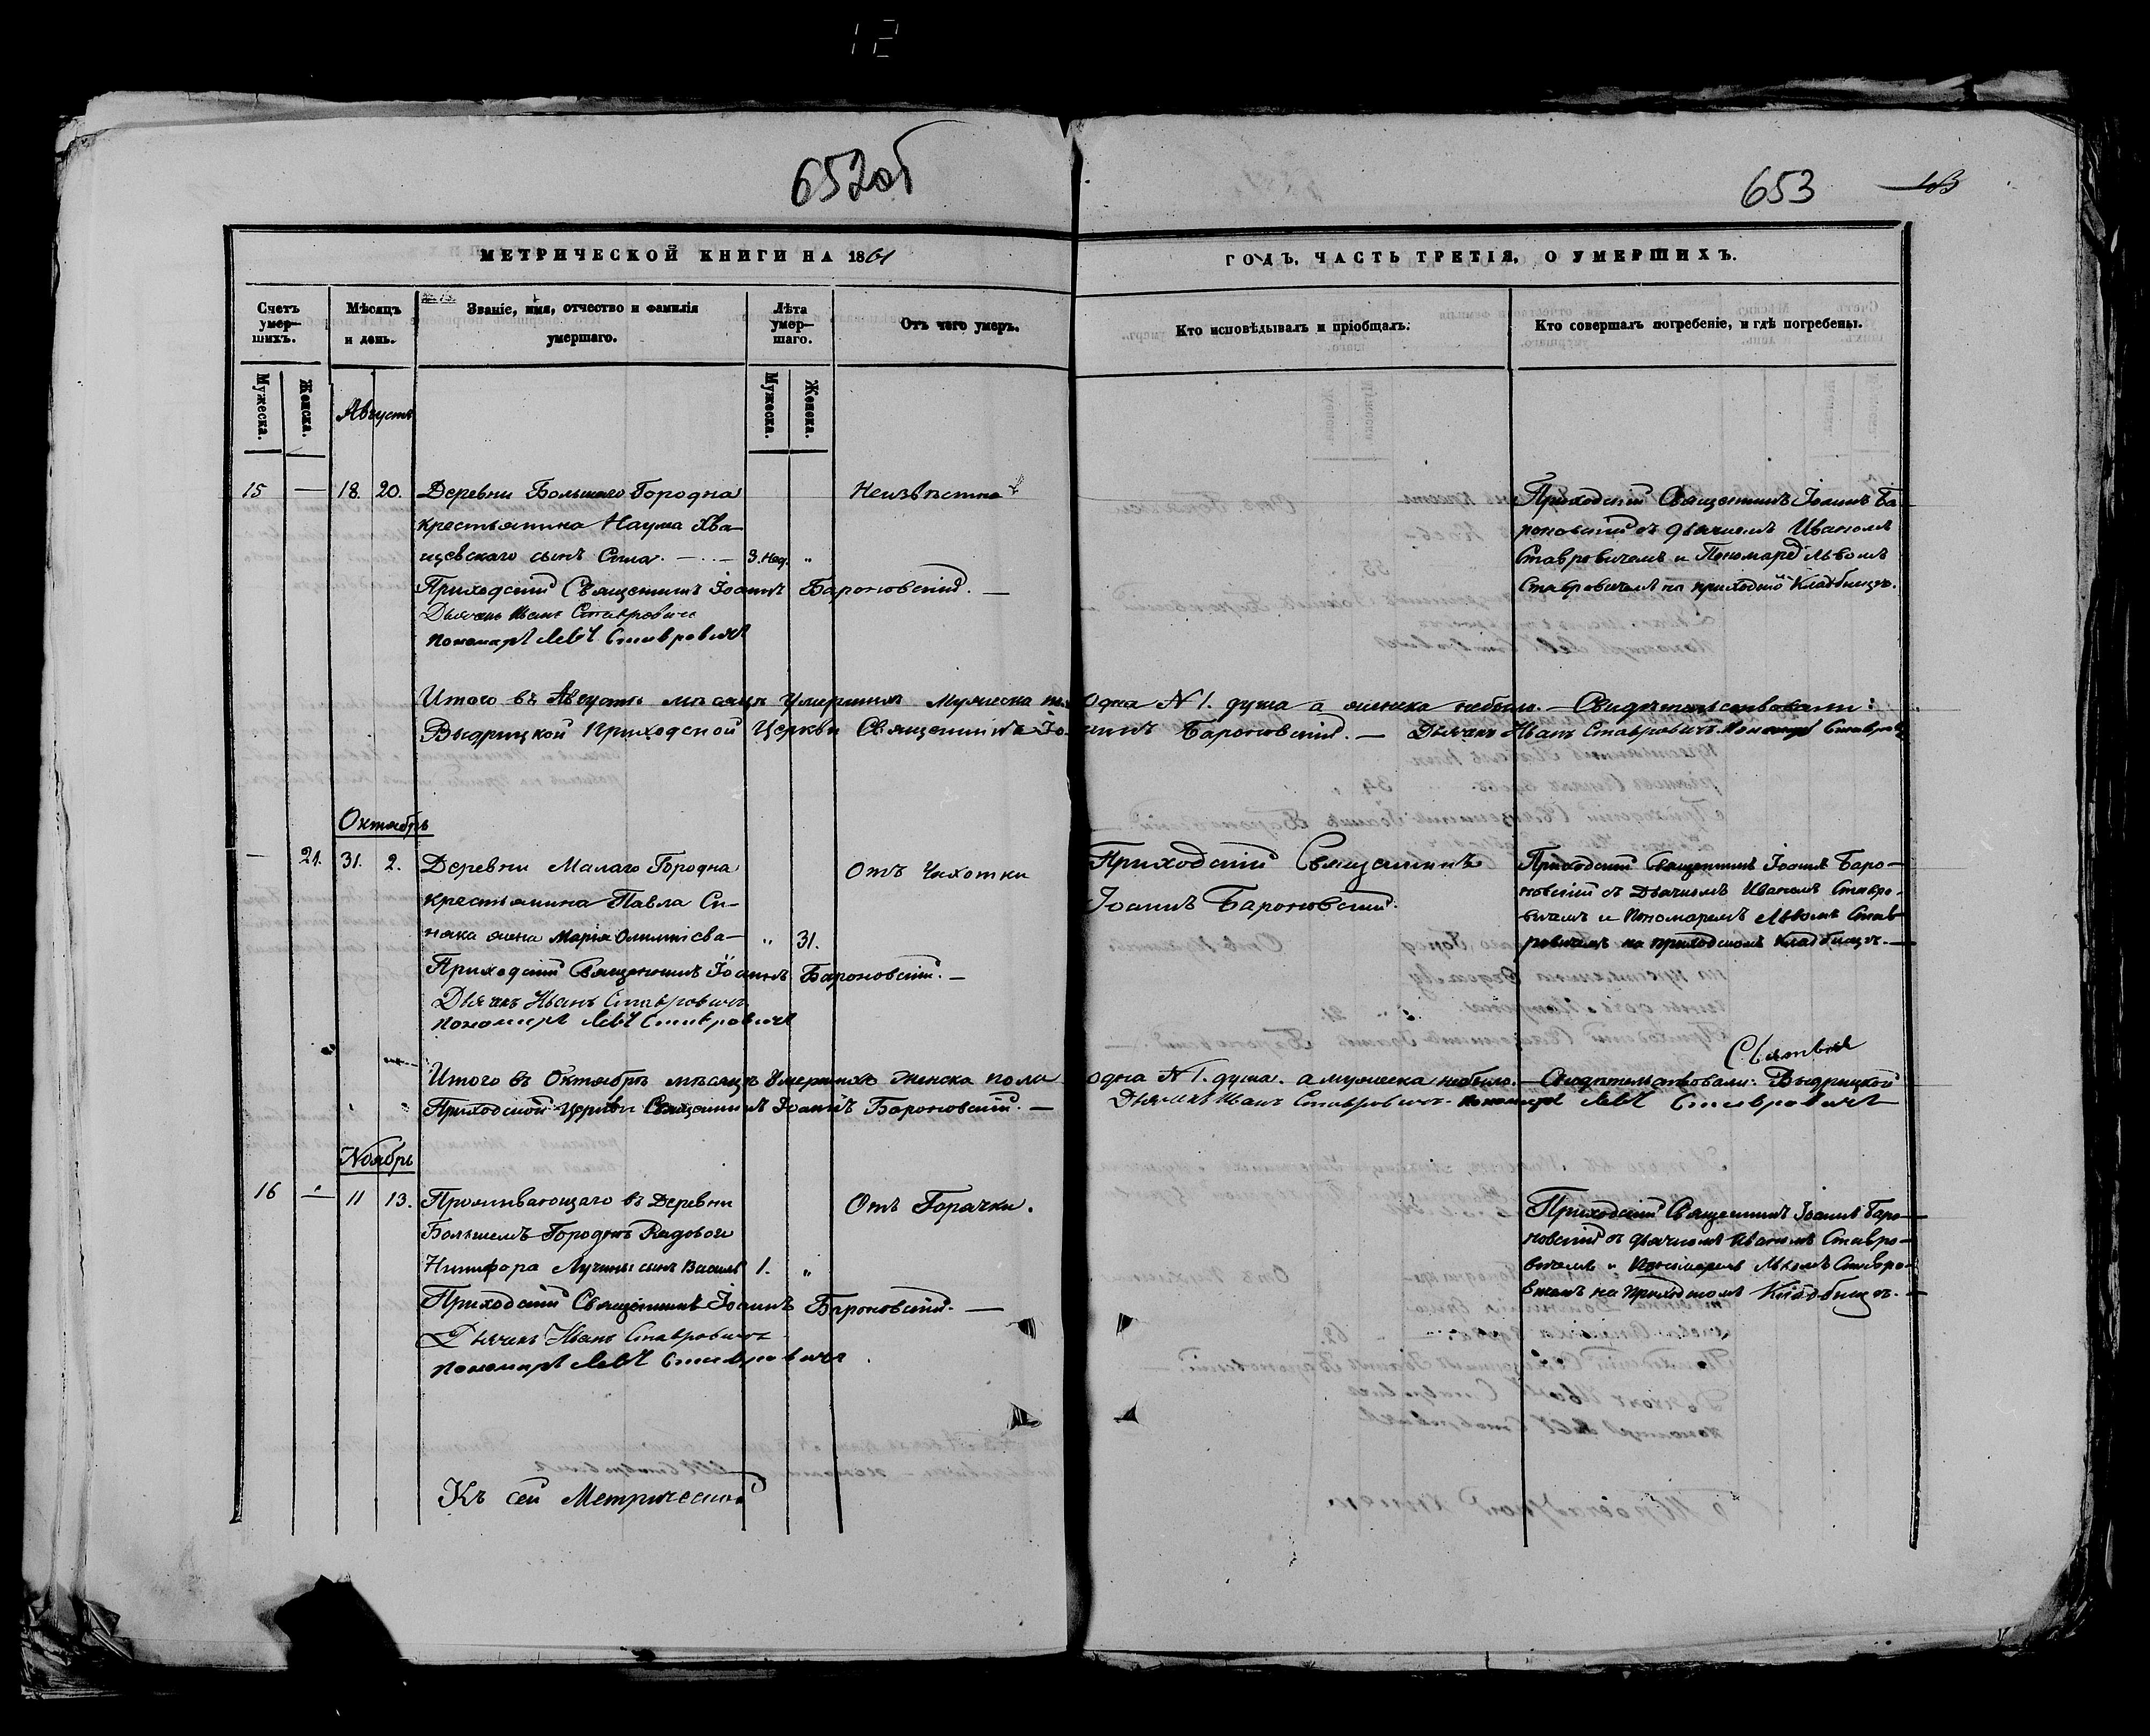 12
652об
653
МЕТРИЧЕСКОЙ КНИГИ НА 1861
ГОДЪ, ЧАСТЬ ТРЕТІЯ, О УМЕРШИХЪ.
Счетъ умер-шихъ.
Мѣсяцъ и день.
Званіе, имя, отчество и фамилія умершаго.
Лѣта умер-шаго.
Отъ чего умеръ.
Кто исповѣдывалъ и пріобщалъ.
Кто совершалъ погребеніе, и гдѣ погребены.
Мужеска.
Женска.
Мужеска.
Женска.
Августъ
15 — 18. 20. Деревни Большаго Городна
крестьянина Наума Хва-
щевскаго сынъ — 3. Нед. "
Неизвѣстно
Приходскій Священникъ Іоаннъ Ба-
роновскій съ дьячкомъ Иваномъ
Ставровичемъ и Пономаремъ Львомъ
Ставровичемъ на приходскомъ кладбищѣ.
Приходскій Священникъ Іоаннъ Бароновскій. —
Дьячекъ Иванъ Ставровичъ
пономарь Левъ Ставровичъ
Итого въ Августѣ мѣсяцѣ Умершихъ Мужеска
Одна N 1. душа а женска небыло. — Свидѣтельствовали:
Выдрицкой Приходской Церкви Священникъ Іо-
аннъ Бароновскій. — Дьячекъ Иванъ Ставровичъ. Пономарь
Октябрь
— 21. 31. 2. Деревни Малаго Городна
крестьянина Павла Си-
няка жена Марія — " 31.
Отъ Чихотки
Приходскій Священникъ
Іоаннъ Бароновскій.
Приходскій Священникъ Іоаннъ Баро-
новскій съ Дьячкомъ Иваномъ Ставро-
вичемъ и Пономаремъ Львомъ Став-
ровичемъ на приходскомъ кладбищѣ. —
Приходскій Священникъ Іоаннъ Бароновскій. —
Дьячекъ Иванъ Ставровичъ
пономарь Левъ Ставровичъ
Итого въ Октябрѣ мѣсяцѣ Умершихъ женска пола
одна N 1. душа. а мужеска небыло. — Свидѣтельствовали: Выдрицкой
Приходской Церкви Священникъ Іоаннъ Бароновскій. —
Дьячекъ Иванъ Ставровичъ. пономарь Левъ Ставровичъ
Ноябрь
16 — 11 13. Проживающаго въ Деревни
Большемъ Городнѣ Рядовои
Никифора Лучины сынъ Василій 1. "
Отъ Горачки.
Приходскій Священникъ Іоаннъ Баро-
новскій съ дьячкомъ Иваномъ Ставро-
вичемъ и Пономаремъ Львомъ Ставро-
вичемъ на Приходскомъ Кладбищѣ. —
Приходскій Священникъ Іоаннъ Бароновскій. —
Дьячекъ Иванъ Ставровичъ
пономарь Левъ Ставровичъ.
Къ сей Метрической